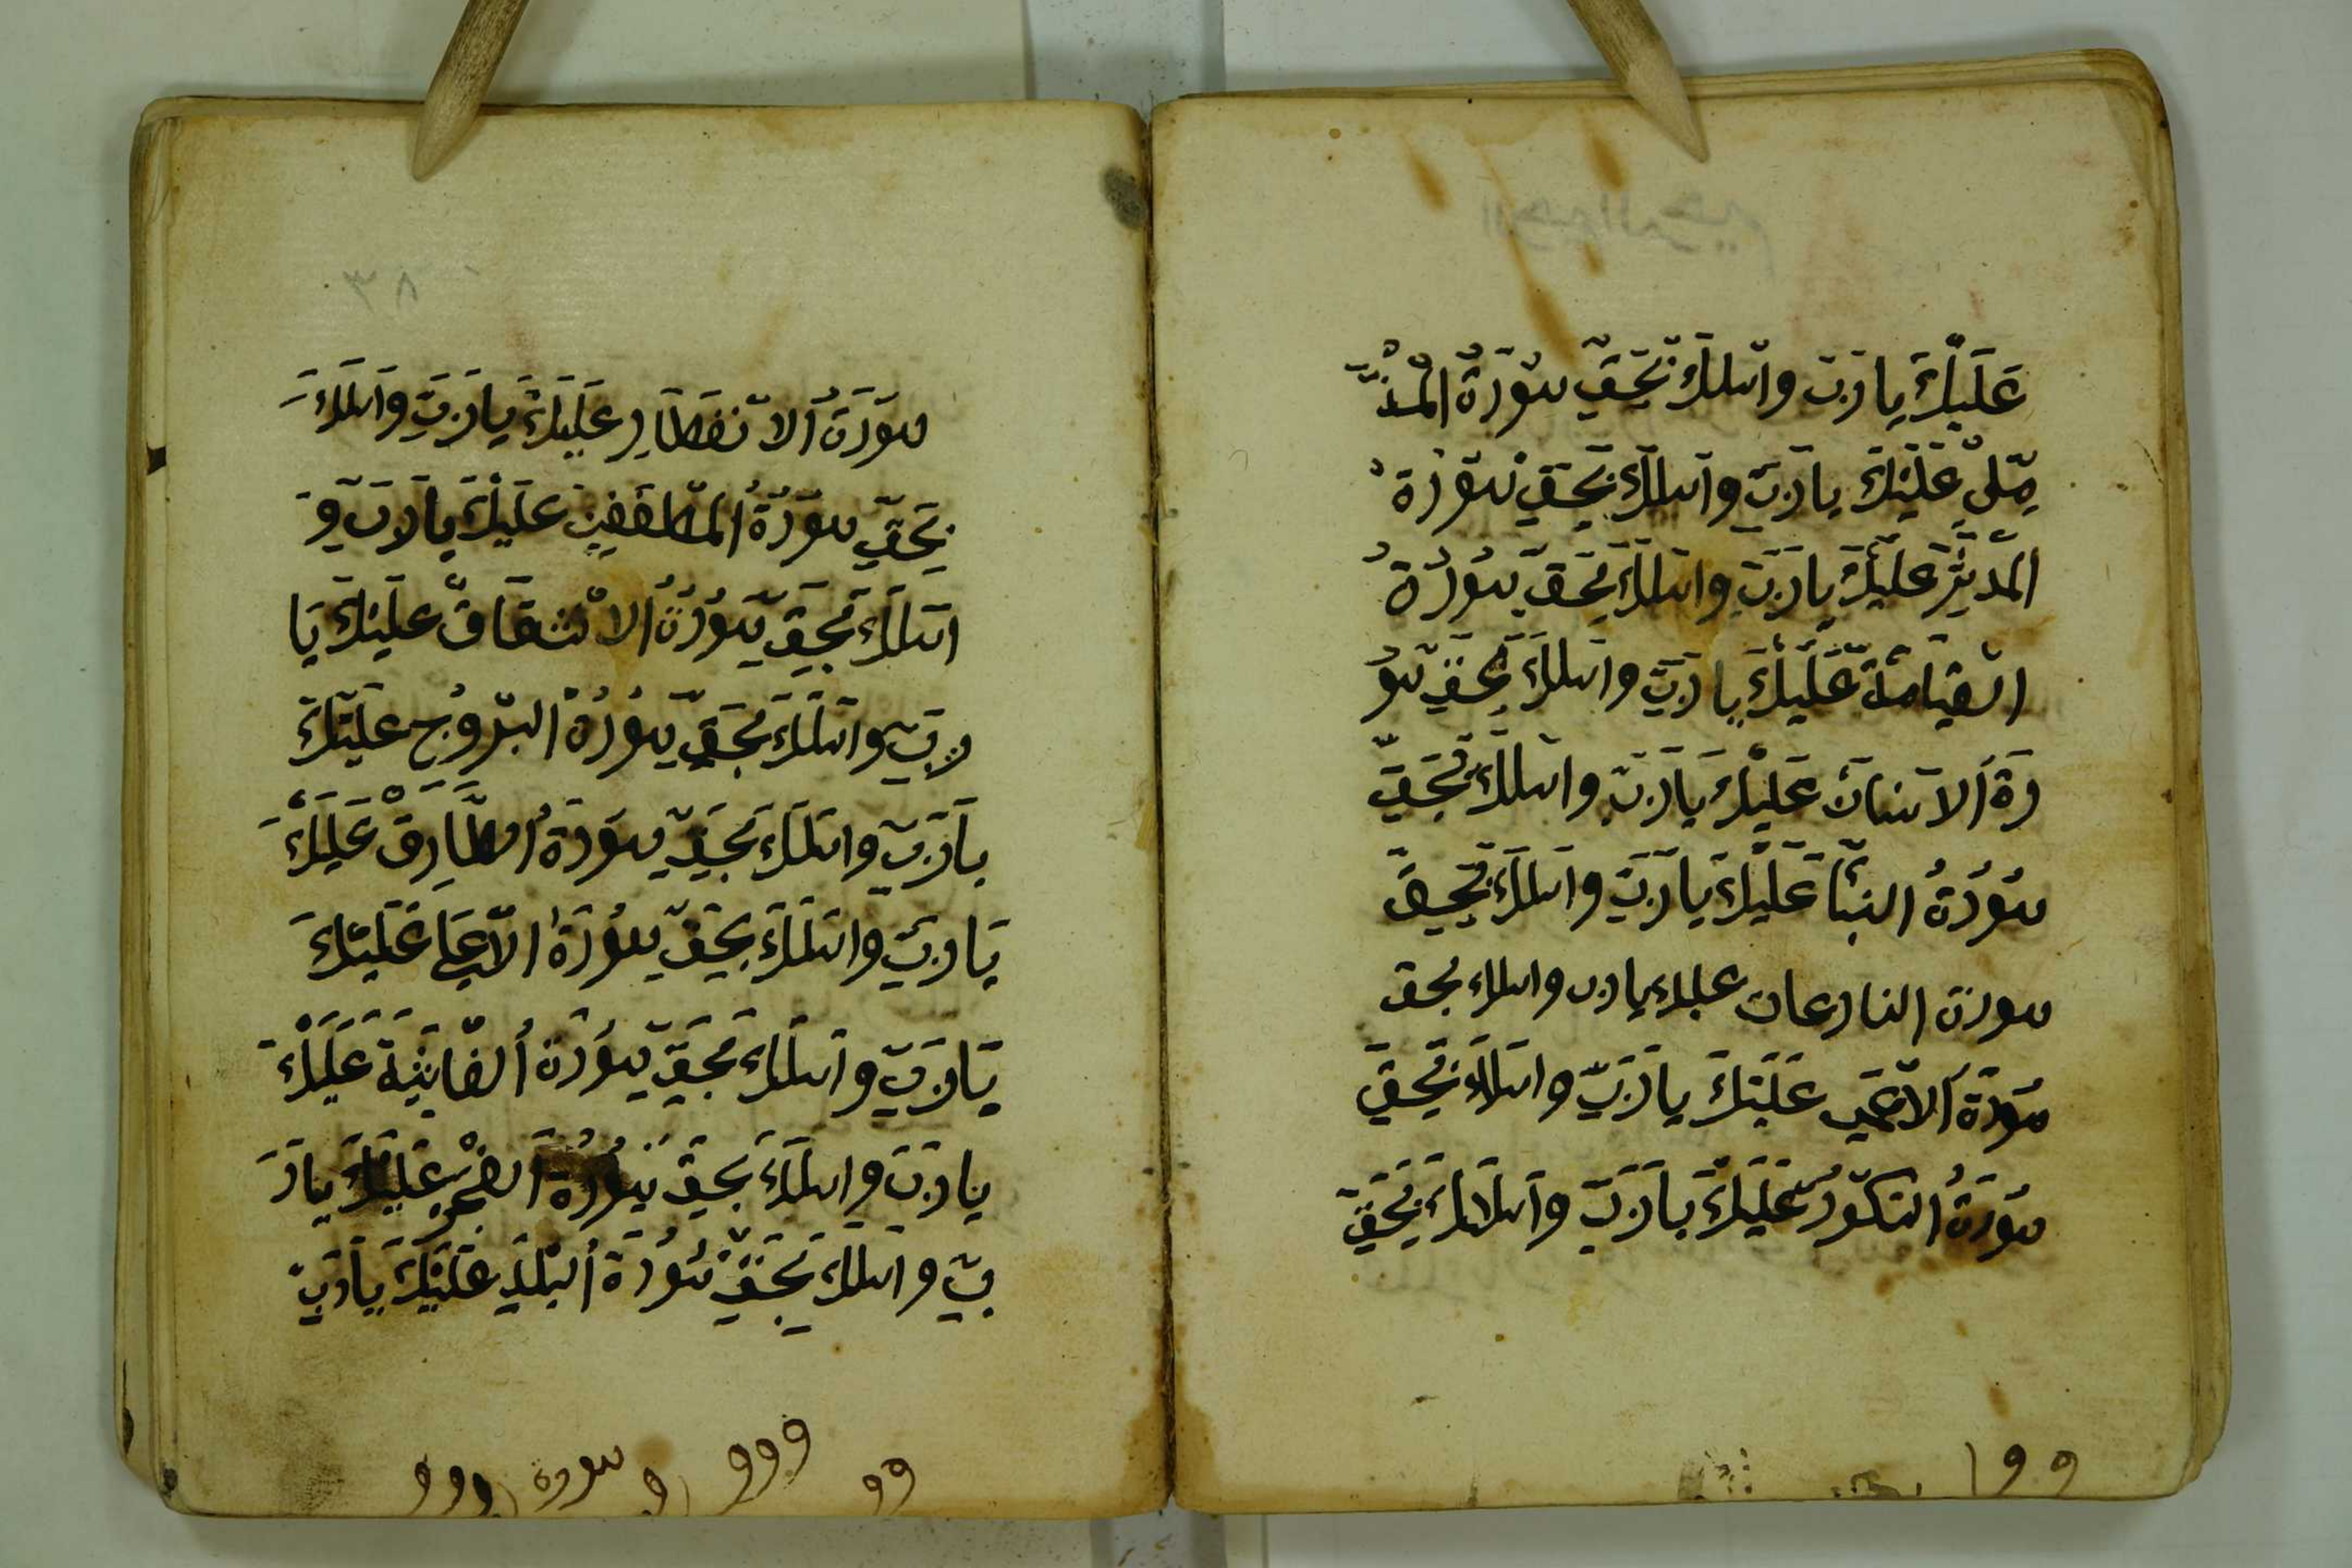 عَلَيْكَ يا رَبّ واسلك بِحَقّ سُورَةُ المُزَّ
مِّلِ عَلَيْكَ يا رَبّ واسلك بِحَقّ سُورَةُ
المُدَّثِّر عَلَيْكَ يا رَبّ واسلك بِحَقّ سُورَةُ
القيامَة عَلَيْكَ يا رَبّ واسلك بِحَقّ سُو
رَة الانسان عَلَيْكَ يَا رَبّ واسلك بِحَقّ
سُورَةُ النبَأ عَلَيْكَ يا رَبّ واسلك بِحَقّ
سورة النازعات عليك يا رب واسلك بحق
سُورَة الاعمى عَلَيْكَ يا رَبّ واسلك بِحَقّ
سُورَةُ التكوّر عَلَيْكَ يا رَبّ واسلك بِحَقّ
الرحيم
سُورَةُ الانفطَارِ عَلَيْكَ يا رَبّ واسلكَ
بِحَقّ سُورَةُ المطففين عَلَيْكَ يا رَبّ وَ
اسلك بِحَقّ سُورَةُ الانشقاق عَلَيْكَ يَا
رَبّ واسلك بِحَقّ سُورَةُ البرُوج عَلَيْكَ
يا رَبّ واسلك بِحَقّ سُورَةُ الطَّارِق عَلَيْكَ
يَا رَبّ واسلك بِحَقّ سُورَةُ الاعلى عَلَيْكَ
يَا رَبّ واسلك بِحَقّ سُورَةُ الغاشِيَة عَلَيْكَ
يا رَبّ واسلك بِحَقّ سُورَةُ الفجْرِ عَلَيْكَ يا رَ
بّ واسلك بِحَقّ سُورَةُ البَلَدِ عَلَيْكَ يا رَبّ
٨٣
سورة